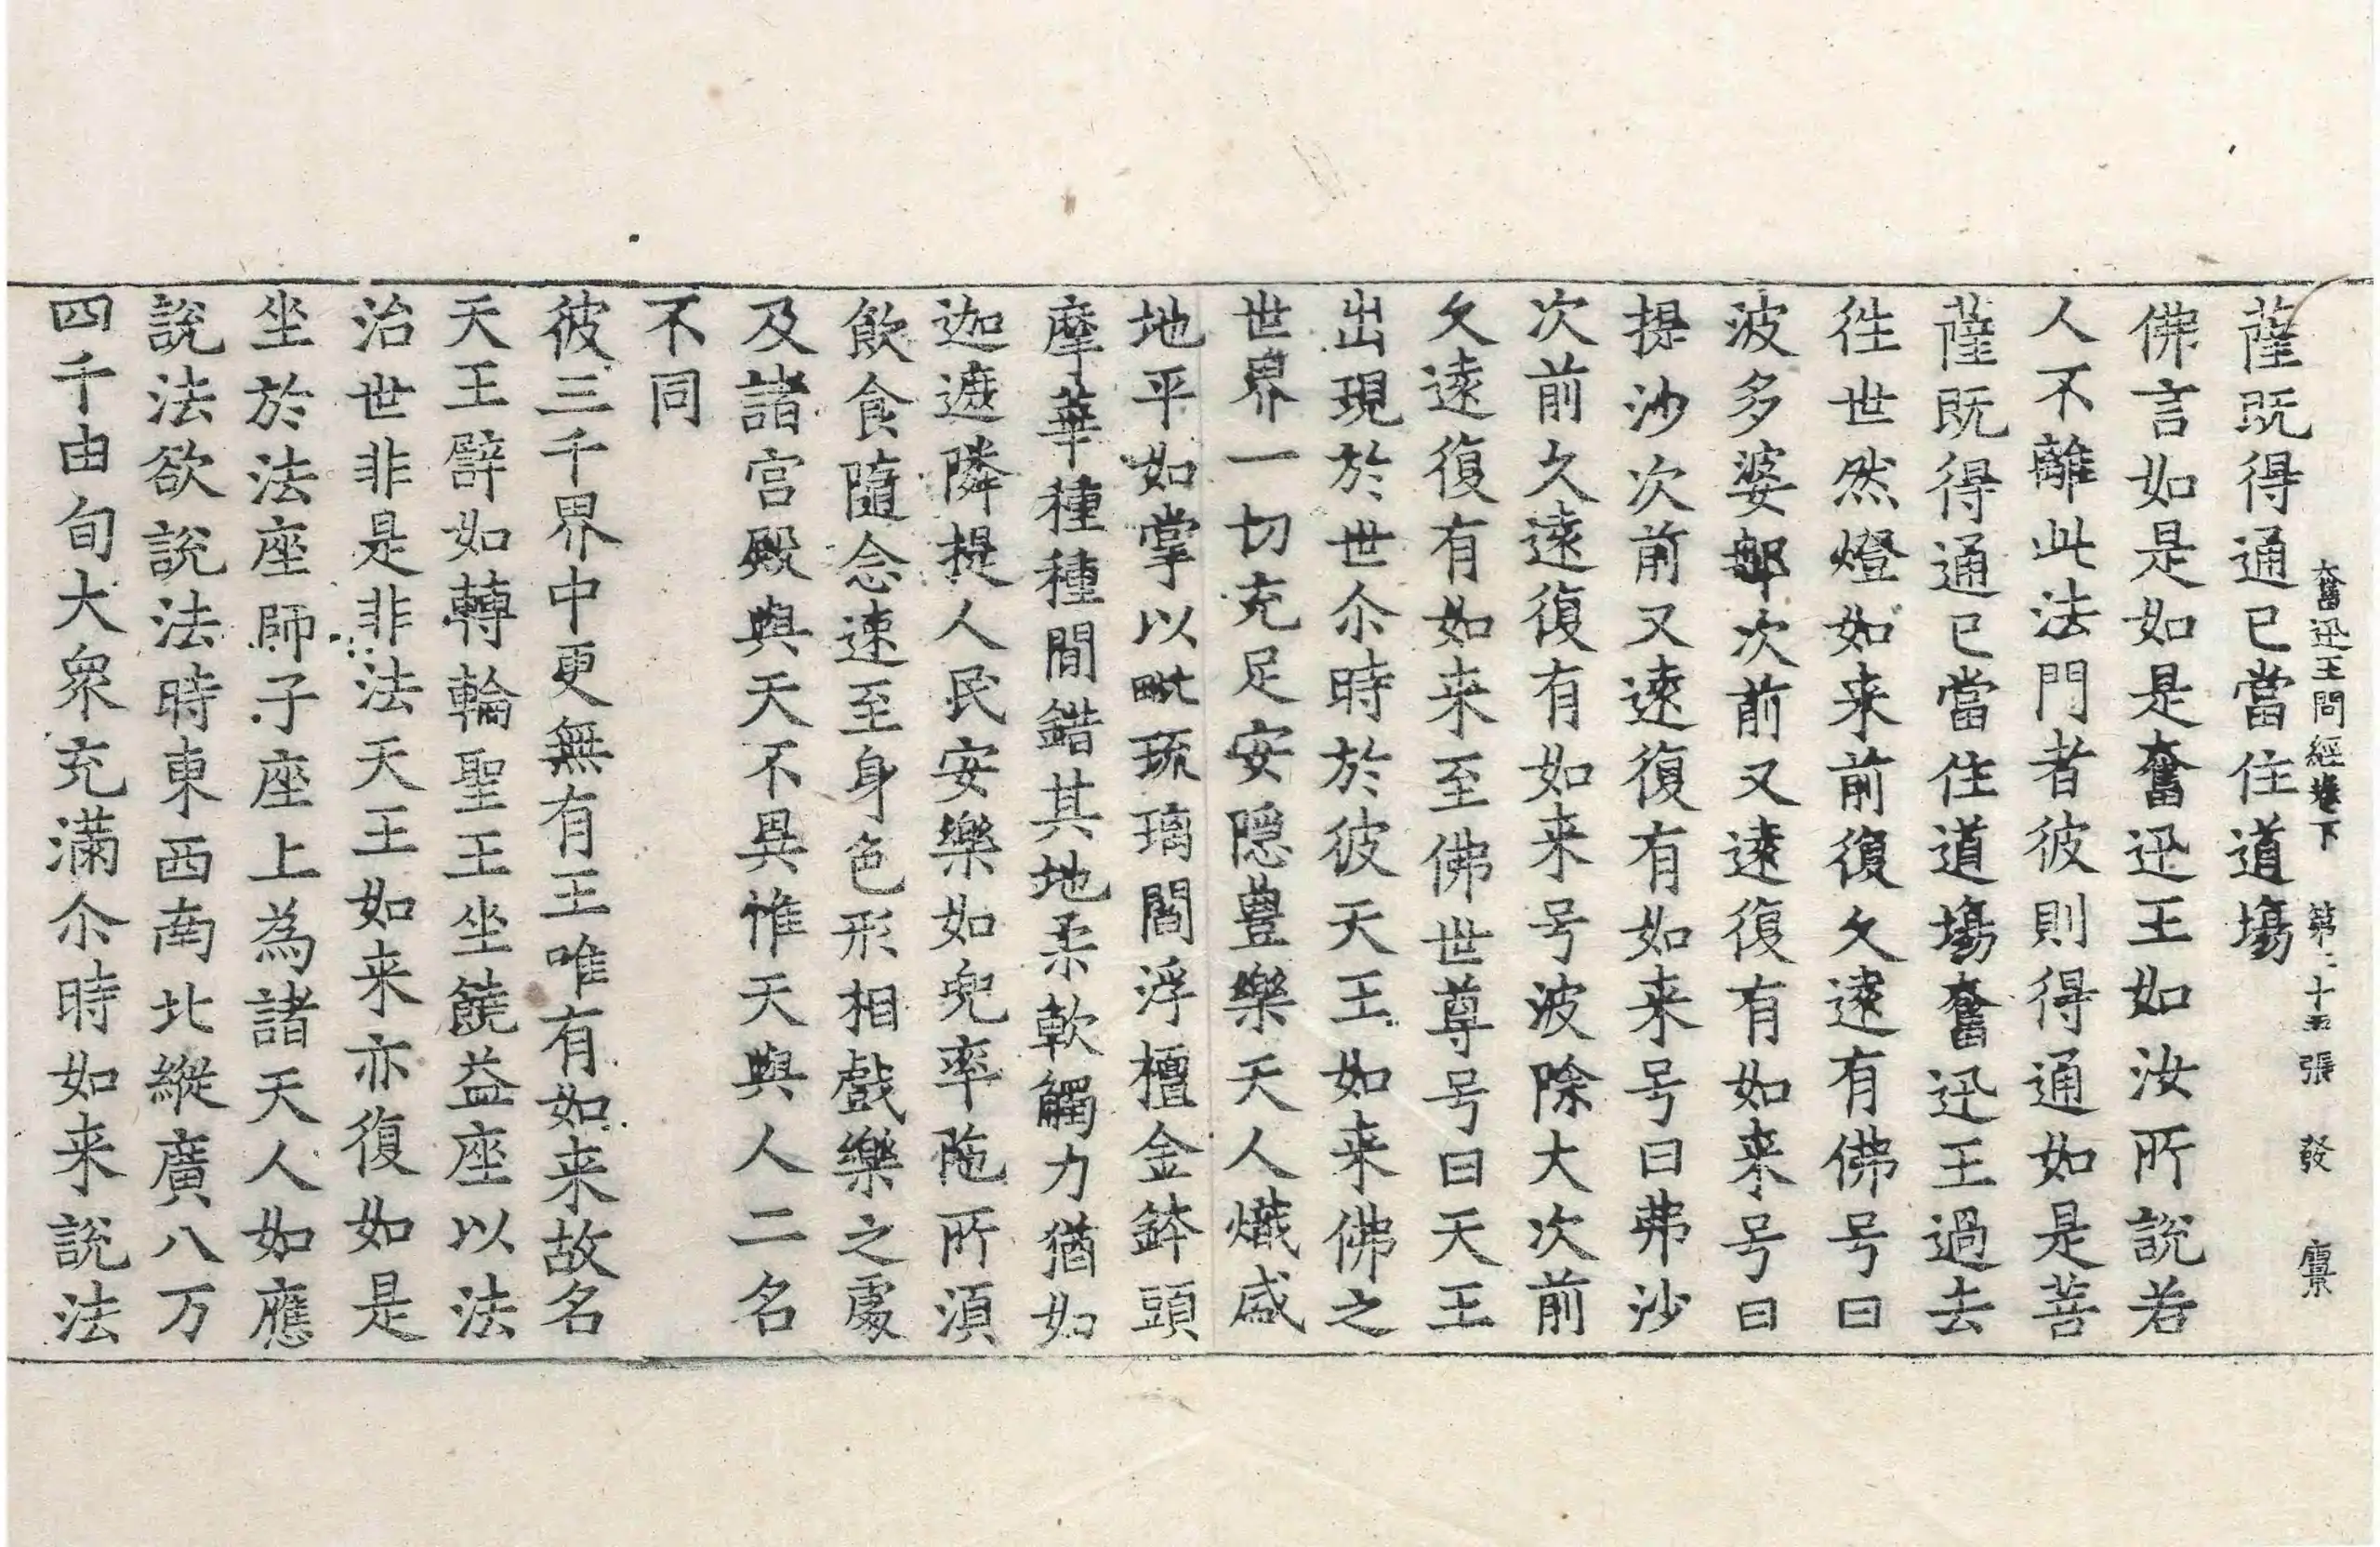 薩既得通已當住道場
大奮迅王問經卷下 第二十五張 發
佛言如是如是奮迅王如汝所説若
人不離此法門者彼則得通如是菩
薩既得通已當住道場奮迅王過去
徃世然燈如来前復久遠有佛号曰
波多婆那次前又遠復有如来号曰
提沙次前又遠復有如来号曰弗沙
次前久遠復有如来号波除大次前
久遠復有如来至佛世尊号曰天王
出現於世尒時於彼天王如来佛之
世界一切充足安隠豊樂天人熾盛
地平如掌以毗琉璃閻浮檀金鉢頭
摩華種種間錯其地柔軟觸力猶如
迦遮隣提人民安樂如兜率陁所湏
飲食隨念速至身色形相戲樂之處
及諸宫殿與天不異惟天與人二名
不同
彼三千界中更無有王唯有如来故名
天王譬如轉輪聖王坐饒益座以法
治世非是非法天王如来亦復如是
坐於法座師子座上為諸天人如應
説法欲説法時東西南北縱廣八万
四千由旬大衆充滿尒時如来説法